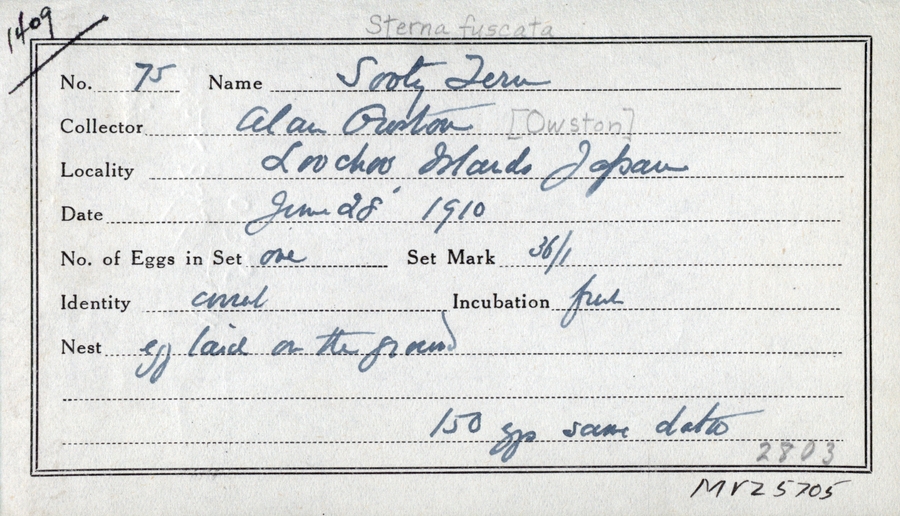 1409
Sterna fuscata
No. 75 Name Sooty Tern
Collector Alan Owston [Owston]
Locality Loochoo Islands Japan
Date June 28 1910
No. of Eggs in Set one Set Mark 36/1
Identity correct Incubation fresh
Nest egg laid on the ground
150 eggs same date
2803
MVZ 5705